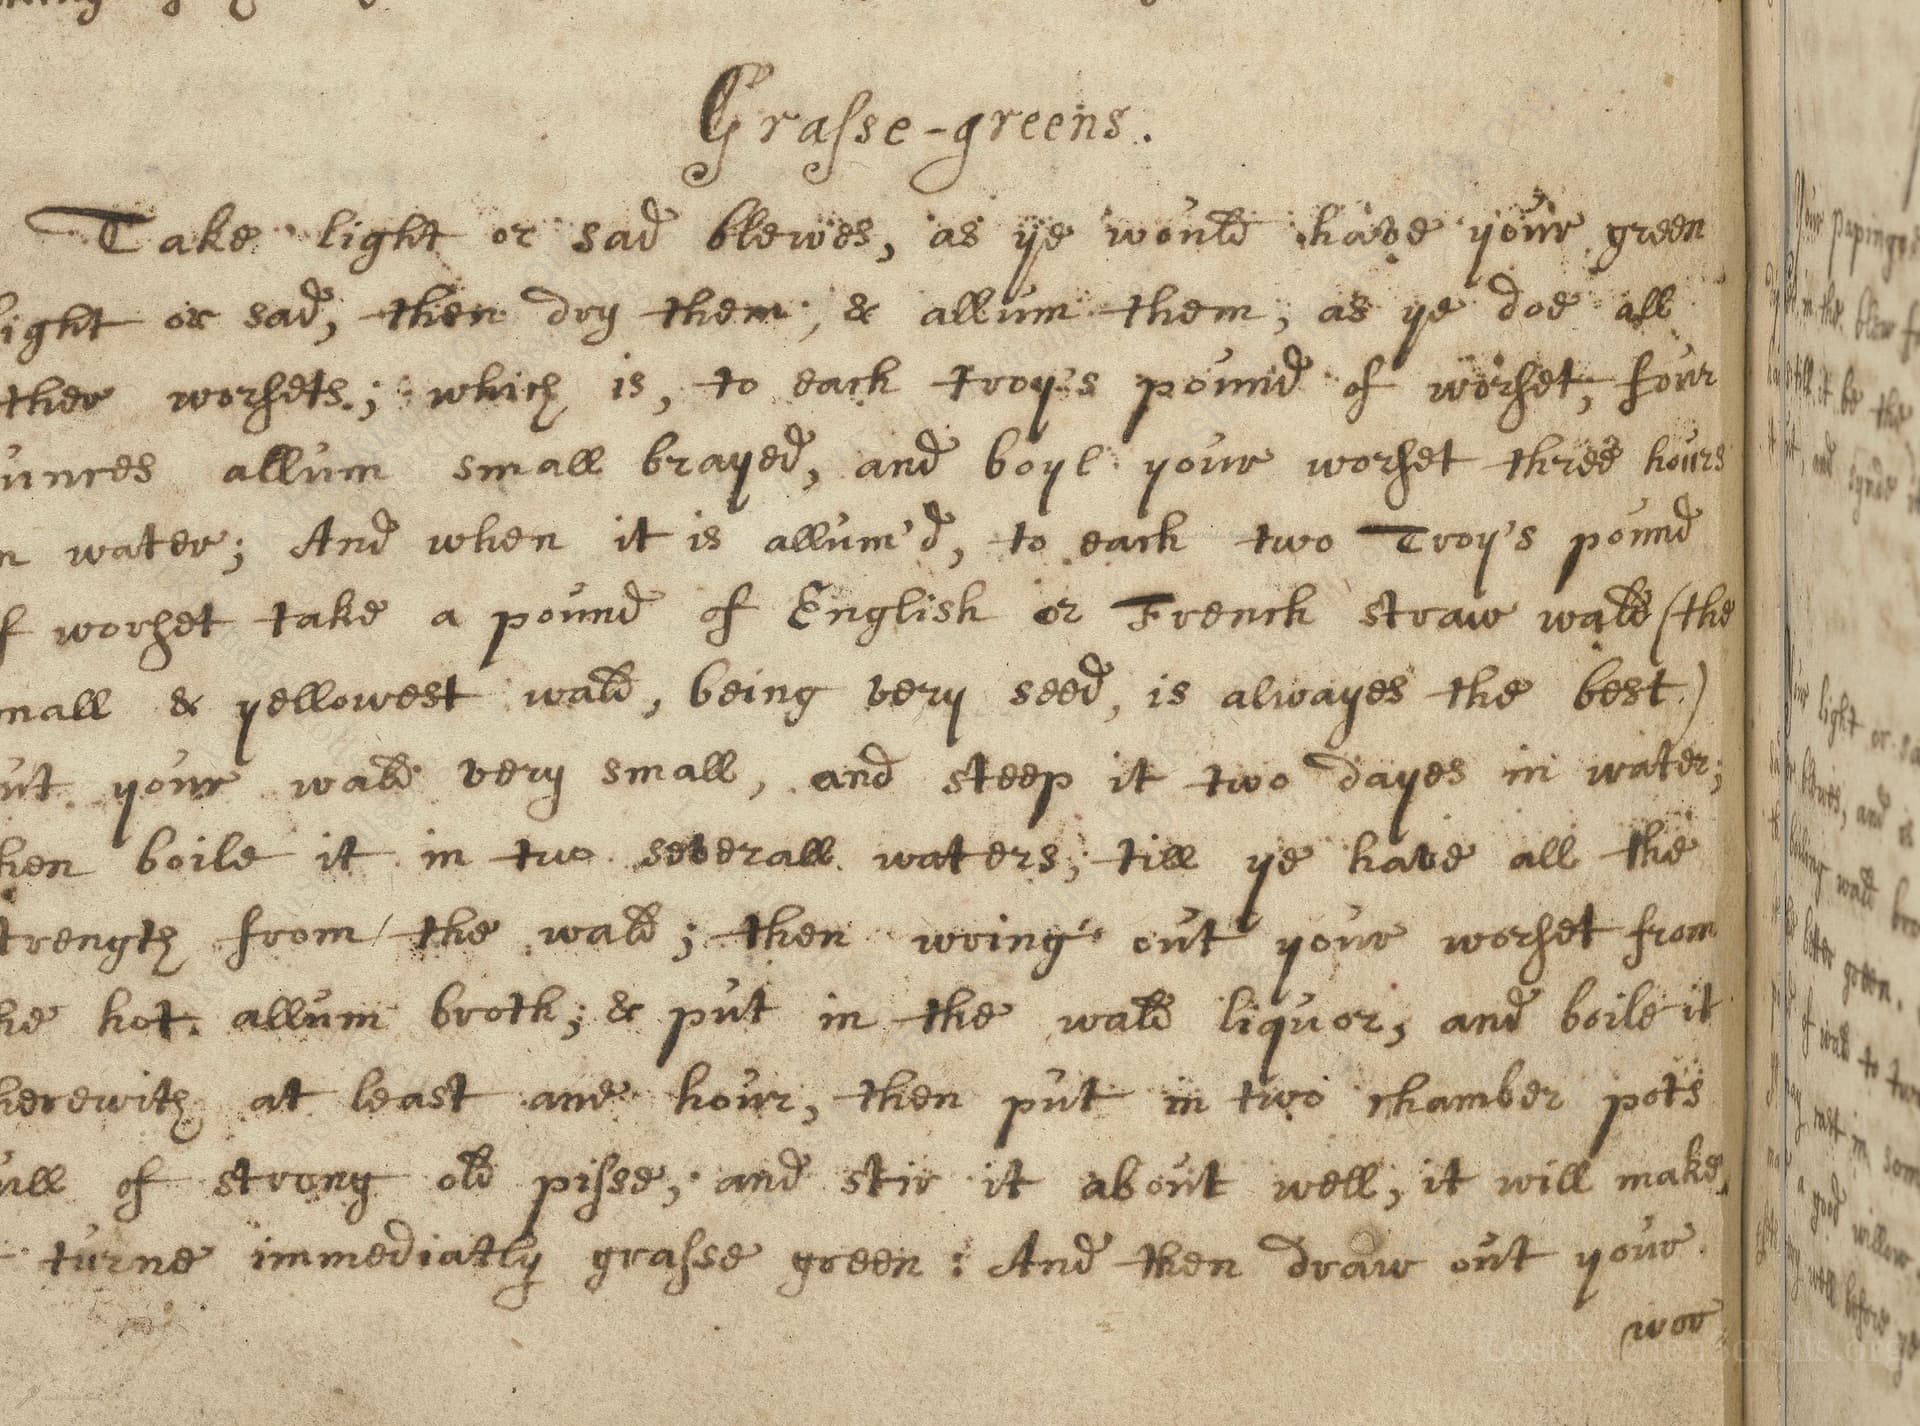 Grasse-greens.
Take light or sad blewes, as ye would have your green
light or sad, then dry them, & allum them, as ye doe all
ther worsets; which is, to each troy's pound of worset, four
unces allum small brayed, and boyl your worset three hours
n water; And when it is allum'd, to each two Troy's pound
f worset take a pound of English or French straw wald (the
mall & yellowest wald, being very seed, is alwayes the best)
ut your wald very small, and steep it two dayes in water;
hen boile it in two severall waters, till ye have all the
trength from the wald; then wring out your worset from
he hot allum broth; & put in the wald liquor, and boile it
herewith at least ane hour, then put in two chamber pots
ull of strong old pisse, and stir it about well, it will make
t turne immediatly grasse green: And then draw out your
wor
Your papingo
in the blew
till it be the
and
light or sa
blewes, and
boiling wald bro
better green.
of wald to turn
in som
a good willow
well before ye
LostKitchenScrolls.org